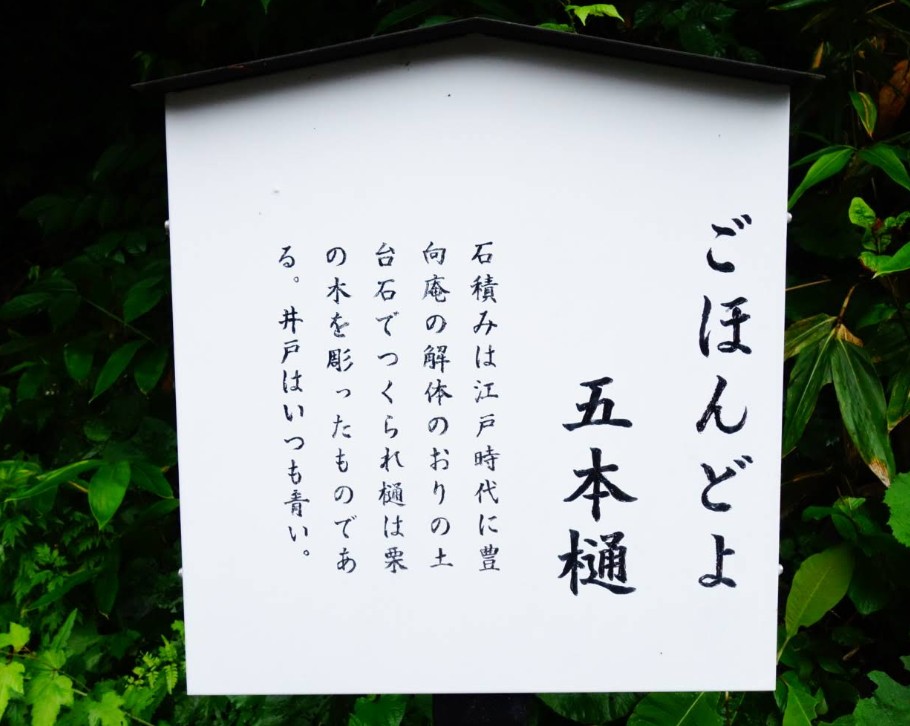 ごほんどよ
五本樋
石積みは江戸時代に豊
向庵の解体のおりの土
台石でつくられ樋は栗
の木を彫ったものであ
る。井戸はいつも青い。